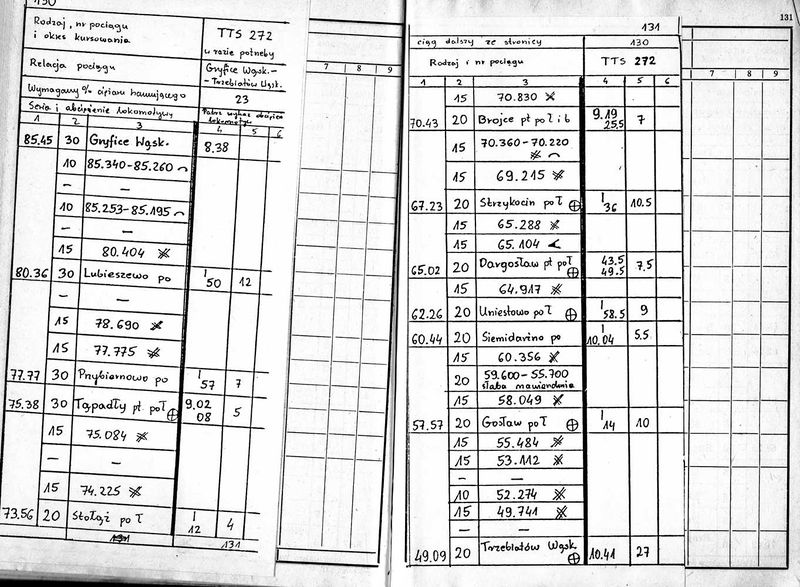 130
Rodzaj, nr pociągu
i okres kursowania
TTS 272
w razie potrzeby
Relacja pociągu
Gryfice Wąsk.-
-Trzebiatów Wąsk.
Wymagany % ciężaru hamującego
23
Seria i obciążenie lokomotywy
Patrz wykaz obciążeń
lokomotyw
1 2 3 4 5 6 7 8 9
85.45 30 Gryfice Wąsk. 8.38
10 85.340-85.260
— —
10 85.253-85.195
— —
15 80.404
80.36 30 Lubieszewo po | 50 12
— —
15 78.690
15 77.775
77.77 30 Przybiernowo po | 57 7
75.38 30 Tąpadły pt poł 9.02 08 5
15 75.084
— —
15 74.225
73.56 20 Stołąż po ł | 12 4
131 131
131
131
ciąg dalszy ze stronicy 130
Rodzaj i nr pociągu TTS 272
1 2 3 4 5 6 7 8 9
15 70.830
70.43 20 Brojce pt poł i b 9.19 25.5 7
15 70.360-70.220
15 69.215
67.23 20 Strzykocin po ł | 36 10.5
15 65.288
15 65.104
65.02 20 Dargosław pt poł 43.5 49.5 7.5
15 64.917
62.26 20 Uniestowo poł | 58.5 9
60.44 20 Siemidarżno po | 10.04 5.5
15 60.356
20 59.600-55.700
słaba nawierzchnia
15 58.049
57.57 20 Gosław po ł | 14 10
15 55.484
15 53.112
— —
10 52.274
15 49.741
— —
49.09 20 Trzebiatów Wąsk. 10.41 27